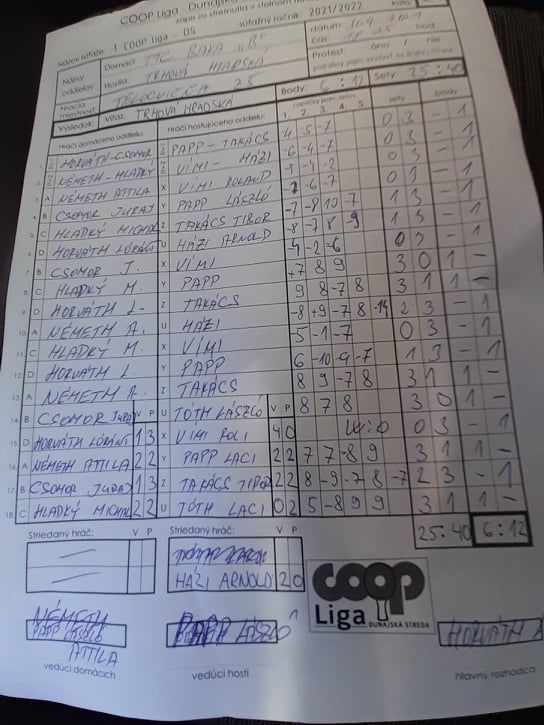 COOP Liga - Dunajská
zápis zo stretnutia v stolnom
Názov súťaže: 1 COOP liga - DS súťažný ročník: 2021/2022
Názvy oddielov Domáci: TTC BAKA "B" dátum:
Hostia: TRHOVÁ HRADSKÁ
Hracia miestnosť TELOCVIČŇA 25 Protest: áno / nie
Výsledok Víťaz: TRHOVÁ HRADSKÁ Body: 6:12 Sety: 25:40
Hráči domáceho oddielu: Hráči hosťujúceho oddielu: 1. 2. 3. 4. 5. sety body
1. HORVÁTH-CSOMOR PAPP-TAKÁCS -4 -5 -7 0 3 - 1
2. NÉMETH-HLADKY VIMI-HÁZI -6 -4 -7 0 3 - 1
3. A NÉMETH ATTILA X VIMI ROLAND 0 3 - 1
4. B CSOMOR JURAJ Y PAPP LÁSZLÓ -6 -7 - 1
5. C HLADKÝ MICHAL Z TAKÁCS TIBOR -7 -8 10 -7 1 3 - 1
6. D HORVÁTH LÓRÁNT U HÁZI ARNOLD -8 -7 8 -9 1 3 - 1
7. B CSOMOR J. X VIMI -4 -2 -6 0 3 - 1
8. C HLADKÝ M. Y PAPP +7 8 9 3 0 1 -
9. D HORVÁTH L. Z TAKÁCS 9 8 -7 8 3 1 1 -
10. A NÉMETH A. U HÁZI -8 +9 -7 8 -14 2 3 - 1
11. C HLADKÝ M. X VIMI -5 -1 -7 0 3 - 1
12. D HORVÁTH L. Y PAPP 6 -10 -9 -7 1 3 - 1
13. A NÉMETH A. Z TAKÁCS 8 9 -7 8 3 1 1 -
14. B CSOMOR JURAJ V P U TÓTH LÁSZLÓ V P 8 7 8 3 0 1 -
15. D HORVÁTH LÓRÁNT 1 3 X VIMI ROLI 4 0 W:0 0 3 - 1
16. A NÉMETH ATTILA 2 2 Y PAPP LACI 2 2 7 7 -8 9 3 1 1 -
17. B CSOMOR JURAJ 1 3 Z TAKÁCS TIBOR 2 2 8 -9 -7 8 -7 2 3 - 1
18. C HLADKÝ MICHAL 2 2 U TÓTH LACI 0 2 5 -8 9 9 3 1 1 -
25:40 6:12
Striedaný hráč: V P Striedaný hráč: V P
HÁZI ARNOLD 2 0
coop
Liga DUNAJSKÁ STREDA
NÉMETH
PAPP LÁSZLÓ PAPP LÁSZLÓ HORVÁTH
ATTILA
vedúci domácich vedúci hostí hlavný rozhodca